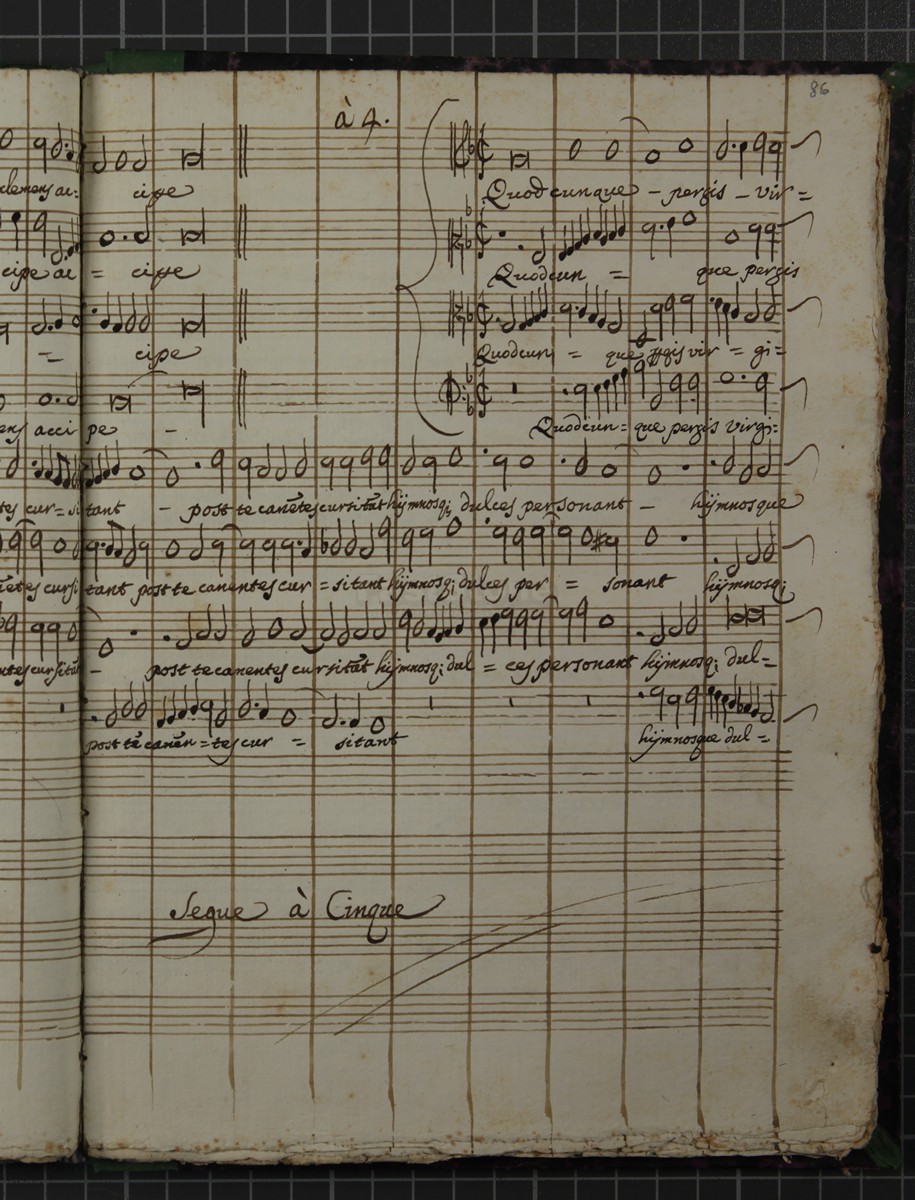 86
à 4.
clemens ac= cipe Quodcunque - pergis - vir =
cipe ac = cipe Quodcun = que pergis
- cipe Quodcun = que pgis vir = gi=
ens acci pe - Quodcun= que pergis virgi=
tes cur= sitant - post te canētes cursitāt hijmnosq; dulces personant - hijmnosque
nētes cursi tant post te canentes cur = sitant hijmnosq; dulces per = sonant hijmnosq;
ntes cursitāt - post te canentes cursitāt hijmnosq; dul = ces personant hijmnosq; dul=
post tē canēn = tes cur = sitant hijmnosque dul=
Segue à Cinque